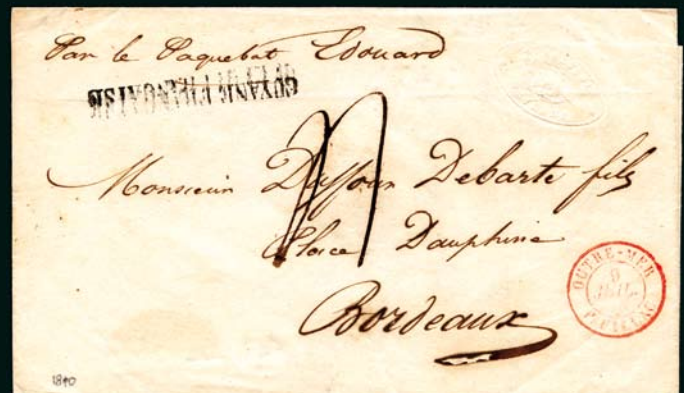 Par le Paquebot Edouard
GUYANE FRANÇAISE
Monsieur Debarte fils
Place Dauphine
Bordeaux
OUTRE-MER
9
JUIL.
PAUILLAC
1840